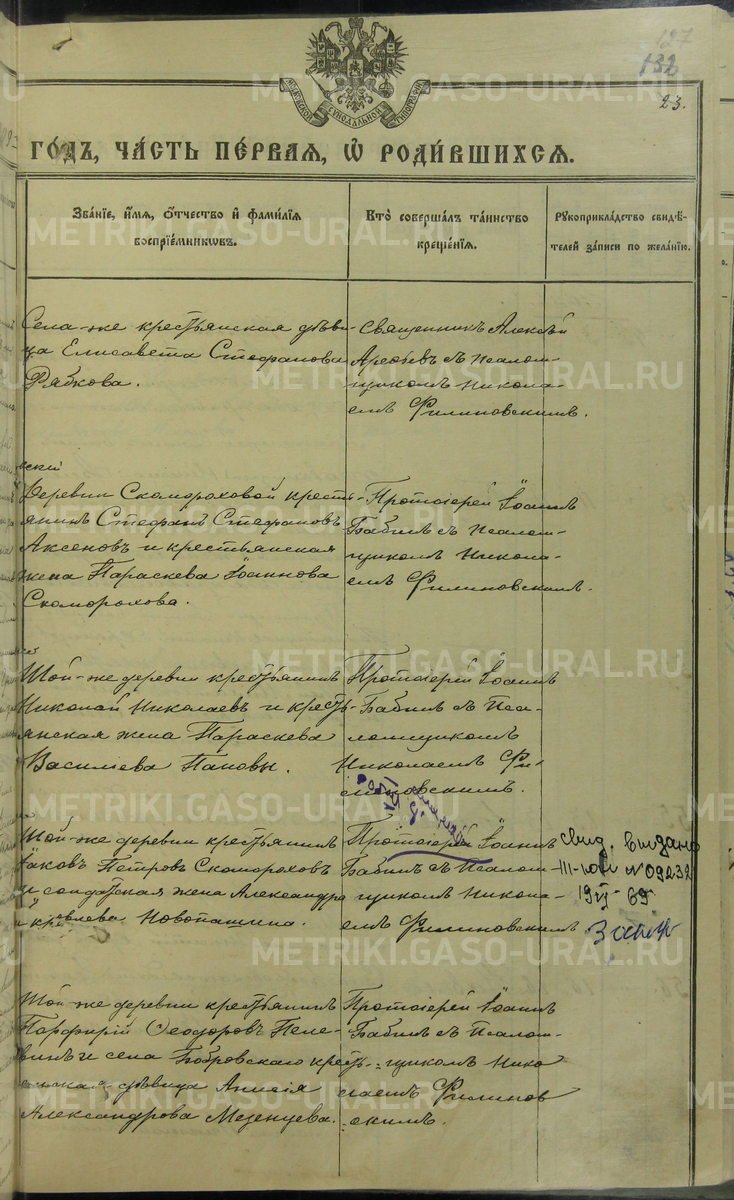 127
132
23.
МОСКОВСКОЙ СѴНОДАЛЬНОЙ ТИПОГРАФІИ
ГО́ДЪ, ЧА́СТЬ ПЕ́РВАЯ, Ѡ҆ РОДИ́ВШИХСЯ.
Зва́нїе, и҆́мѧ, ѻ҆́тчество и҆ фами́лїѧ
воспрїе́мникѡвъ.
Кто̀ соверша́лъ та́инство
креще́нїѧ.
Рꙋкоприкла́дство свидѣ́-
телей за́писи по жела́нїю.
Села-же крестьянская дѣви-
ца Елисавета Стефанова
Рябкова.
Священникъ Алексѣй
Арефьевъ съ псалом-
щикомъ Никола-
емъ Филиповскимъ.
Деревни Скомороховой кресть-
янинъ Стефанъ Стефановъ
Аксеновъ и крестьянская
жена Параскева Іоаннова
Скоморохова.
Протоіерей Іоаннъ
Бабинъ съ псалом-
щикомъ Никола-
емъ Филиповскимъ.
Той-же деревни крестьянинъ
Николай Николаевъ и кресть-
янская жена Параскева
Василіева Пановы.
Протоіерей Іоаннъ
Бабинъ съ Пса-
ломщикомъ
Николаемъ Фи-
липовскимъ.
Той-же деревни крестьянинъ
Іаковъ Петровъ Скомороховъ
и солдатская жена Александра
Новопашина.
Протоіерей Іоаннъ
Бабинъ съ псалом-
щикомъ Никола-
емъ Филиповскимъ
Свид. выдано
III-ЮАИ №09232
69
Той-же деревни крестьянинъ
Порфирій Ѳеодоровъ Пеле-
винъ и села Бобровскаго кресть-
янская дѣвица Анисія
Александрова Мезенцева.
Протоіерей Іоаннъ
Бабинъ съ псалом-
щикомъ Нико
лаемъ Филипов
скимъ.
METRIKI.GASO-URAL.RU
METRIKI.GASO-URAL.RU
METRIKI.GASO-URAL.RU
METRIKI.GASO-URAL.RU
METRIKI.GASO-URAL.RU
METRIKI.GASO-URAL.RU
METRIKI.GASO-URAL.RU
METRIKI.GASO-URAL.RU